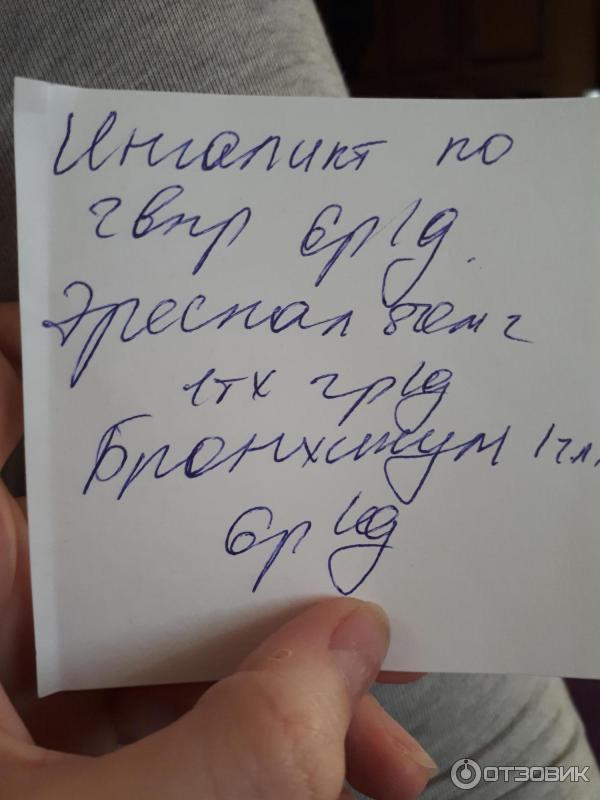 Ингалипт по
2 впр 6р/д.
Эреспал 80мг
1т х 2р/д
Бронхикум 1ч.л.
6р/д
ОТЗОВИК